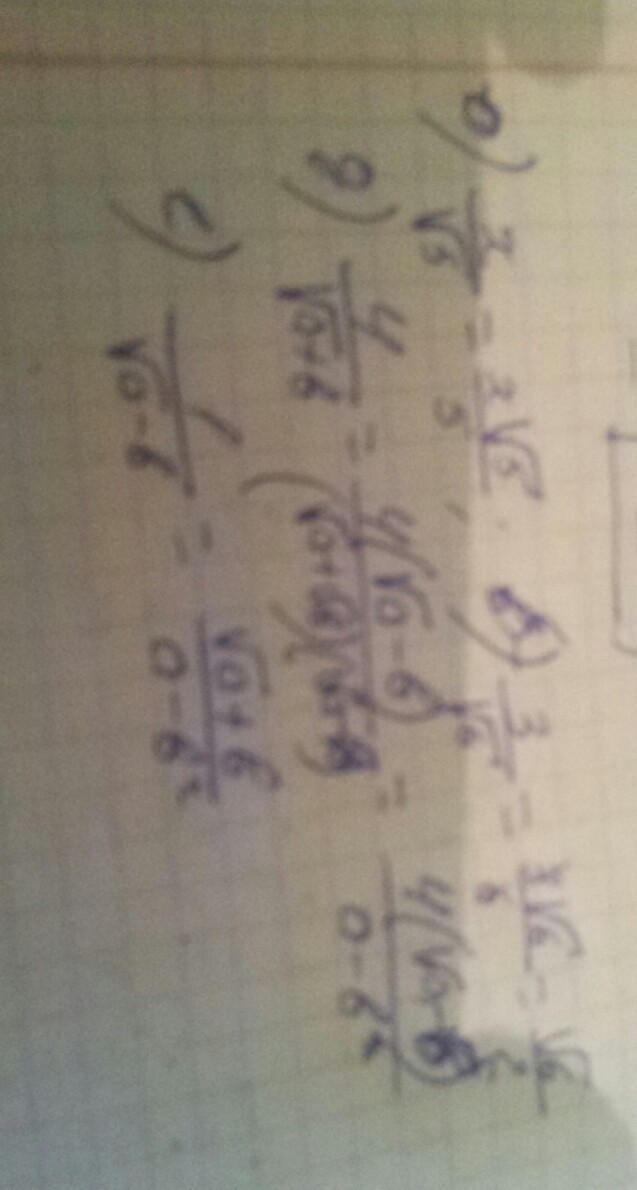 а) 2/√5 = 2√5/5, б) 3/√6 = 3√6/6 = √6/2
в) 4/(√a+b) = 4(√a-b)/((√a+b)(√a-b)) = 4(√a-b)/(a-b²)
г) 1/(√a-b) = (√a+b)/(a-b²)